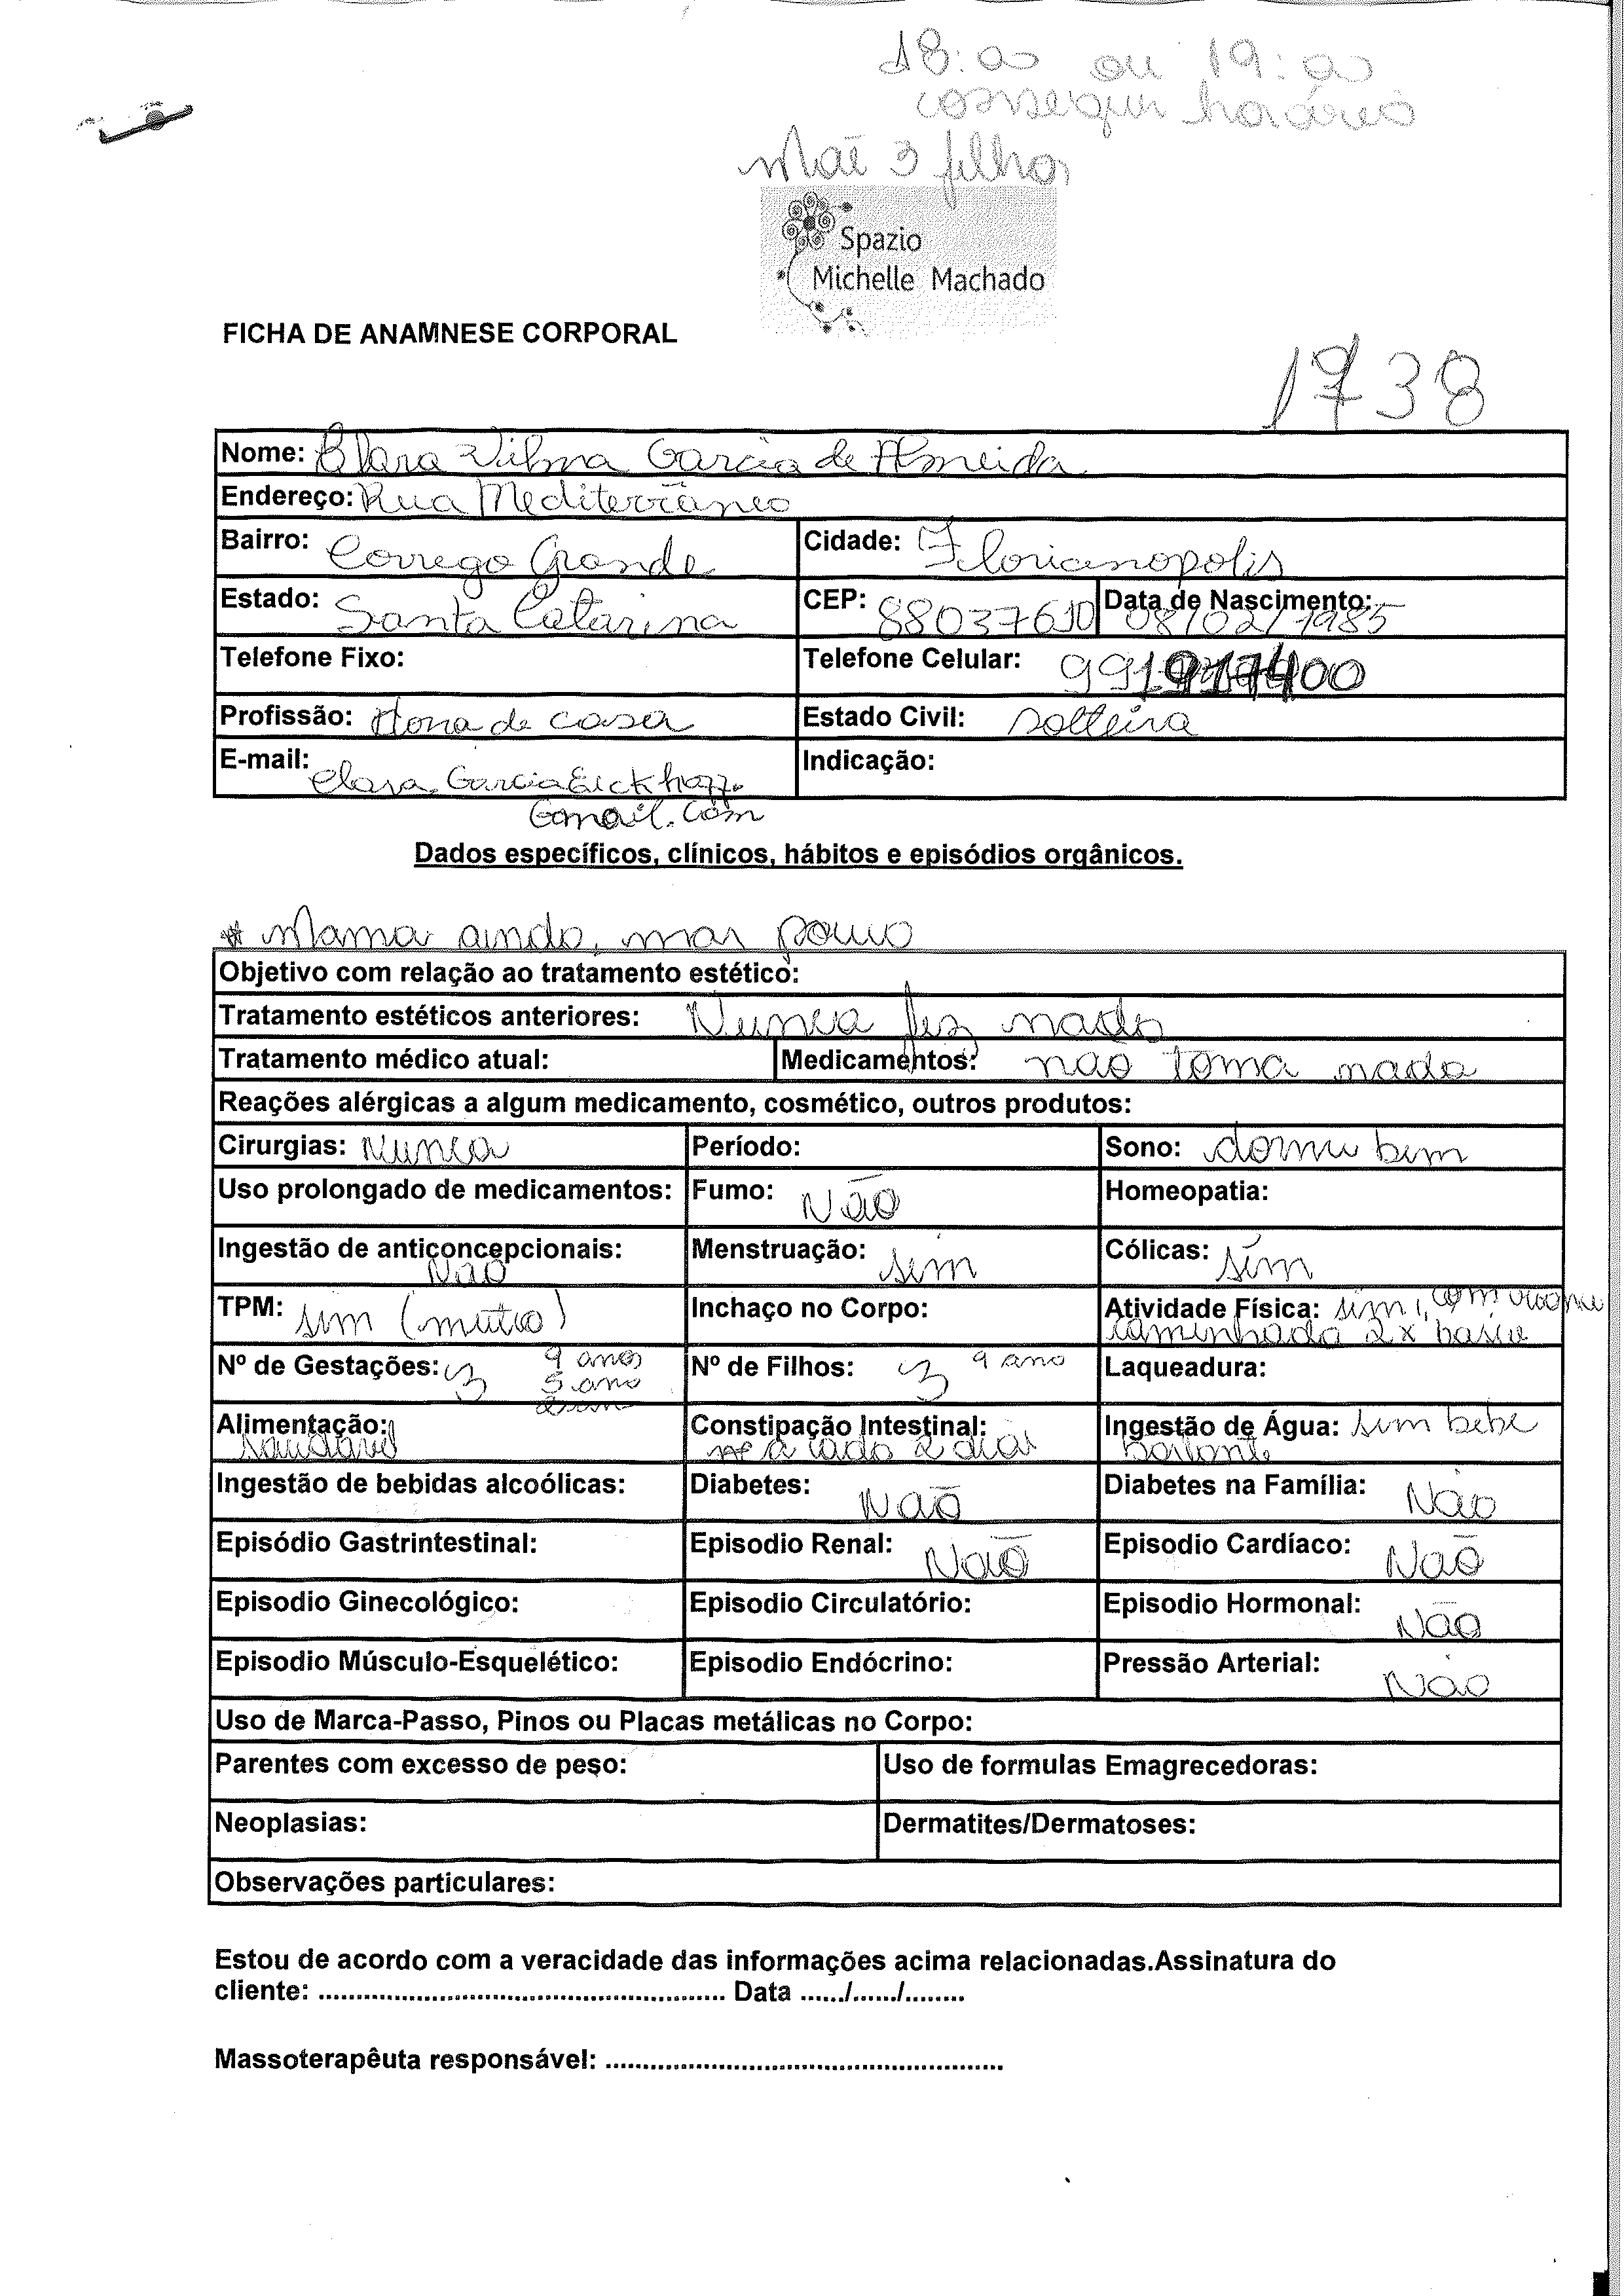 18:00 ou 19:00
consegui horário
Mãe 3 filhos
Spazio
Michelle Machado
FICHA DE ANAMNESE CORPORAL
1738
Nome: Clara Vilma Garcia de Almeida
Endereço: Rua Mediterrâneo
Bairro: Corrego Grande Cidade: Florianopolis
Estado: Santa Catarina CEP: 88037610 Data de Nascimento: 08/02/1985
Telefone Fixo: Telefone Celular: 991917400
Profissão: Dona de casa Estado Civil: solteira
E-mail: clara.GarciaEickhoff.
Gmail.com Indicação:
Dados específicos, clínicos, hábitos e episódios orgânicos.
* Mama ainda, mas pouco
Objetivo com relação ao tratamento estético:
Tratamento estéticos anteriores: Nunca fez nada
Tratamento médico atual: Medicamentos: nao toma nada
Reações alérgicas a algum medicamento, cosmético, outros produtos:
Cirurgias: Nunca Período: Sono: dorme bem
Uso prolongado de medicamentos: Fumo: Não Homeopatia:
Ingestão de anticoncepcionais: Não Menstruação: sim Cólicas: sim
TPM: sim (muito) Inchaço no Corpo: Atividade Física: sim, com
caminhada 2x
Nº de Gestações: 3 9 anos Nº de Filhos: 3 9 ano Laqueadura:
5 ano
Alimentação: saudável Constipação Intestinal: a cada 2 dias Ingestão de Água: sim bebe
bastante
Ingestão de bebidas alcoólicas: Diabetes: Não Diabetes na Família: Não
Episódio Gastrintestinal: Episodio Renal: Não Episodio Cardíaco: Não
Episodio Ginecológico: Episodio Circulatório: Episodio Hormonal: Não
Episodio Músculo-Esquelético: Episodio Endócrino: Pressão Arterial: Não
Uso de Marca-Passo, Pinos ou Placas metálicas no Corpo:
Parentes com excesso de peso: Uso de formulas Emagrecedoras:
Neoplasias: Dermatites/Dermatoses:
Observações particulares:
Estou de acordo com a veracidade das informações acima relacionadas.Assinatura do
cliente: ..................................................... Data ....../....../........
Massoterapêuta responsável: .....................................................